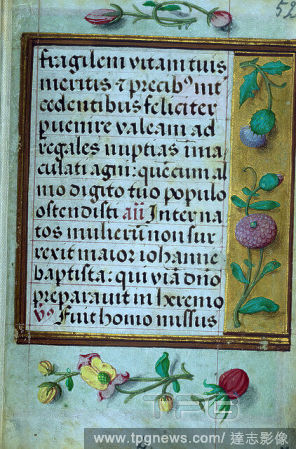 52
fragilem vitam tuis
meritis ⁊ precibꝰ int
cedentibus feliciter
puenire valeam ad
regales nuptias ima
culati agni: quem cum al
mo digito tuo populo
ostendisti añ Inter na
tos mulierū non sur
rexit maior iohanne
baptista: qui viā dño
preparavit in heremo
℣s Fuit homo missus
TPG
www.tpgnews.com / 達志影像